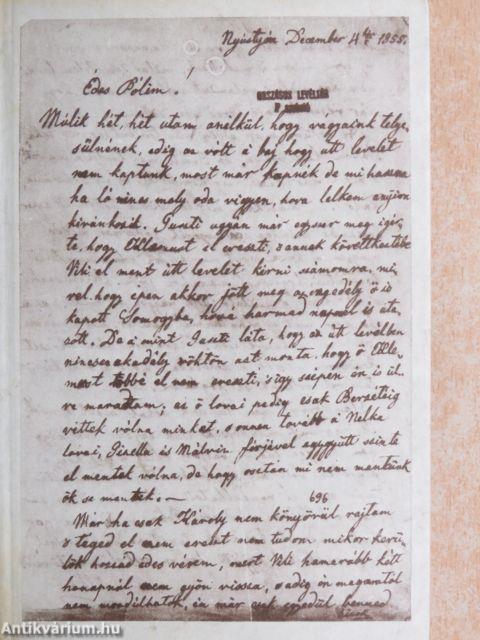 Nyústyán December 4kén 1855.
Édes Pólim!
ORSZÁGOS LEVÉLTÁR
P szekció
Múlik hét, hét után anélkül, hogy vágyaink telye-
sülnének, edig az vólt a baj hogy útt levelet
nem kaptunk, most már kapnék de mi haszna
ha ló nincs mely oda vigyen, hova lelkem anyira
kivánkozik. Guszti ugyan már egyszer meg igér-
te, hogy el ereszti, s annak következtébe
Vili el ment útt levelet kérni számomra, mi-
vel hogy épen akkor jött meg az engedély ő is
kapott Somogyba, hová harmad napnál is uta-
zott. De a mint Guszti láta, hogy az útt levélben
nincsen akadály vöktön azt monta, hogy ő
többé el nem ereszti, s így szépen én is ül-
ve maradtam; az ő lovai pedig csak Berzétéig
vittek vólna minket, s onnen tovább a Nelka
lovai, Gizella és Malvin férjével eggyütt szinte
el mentek vólna, de hogy osztán mi nem mentünk
ők se mentek. —
696
Már ha csak Károly nem könyörül rajtam
s téged el nem ereszt nem tudom mikor kerü-
lök hozzád édes vérem, mert Vili hamarább két
hónapnál nem gyön vissza, s adig én magamtól
nem mozdúlhatok, én már csak egyedül benned
Antikvárium.hu